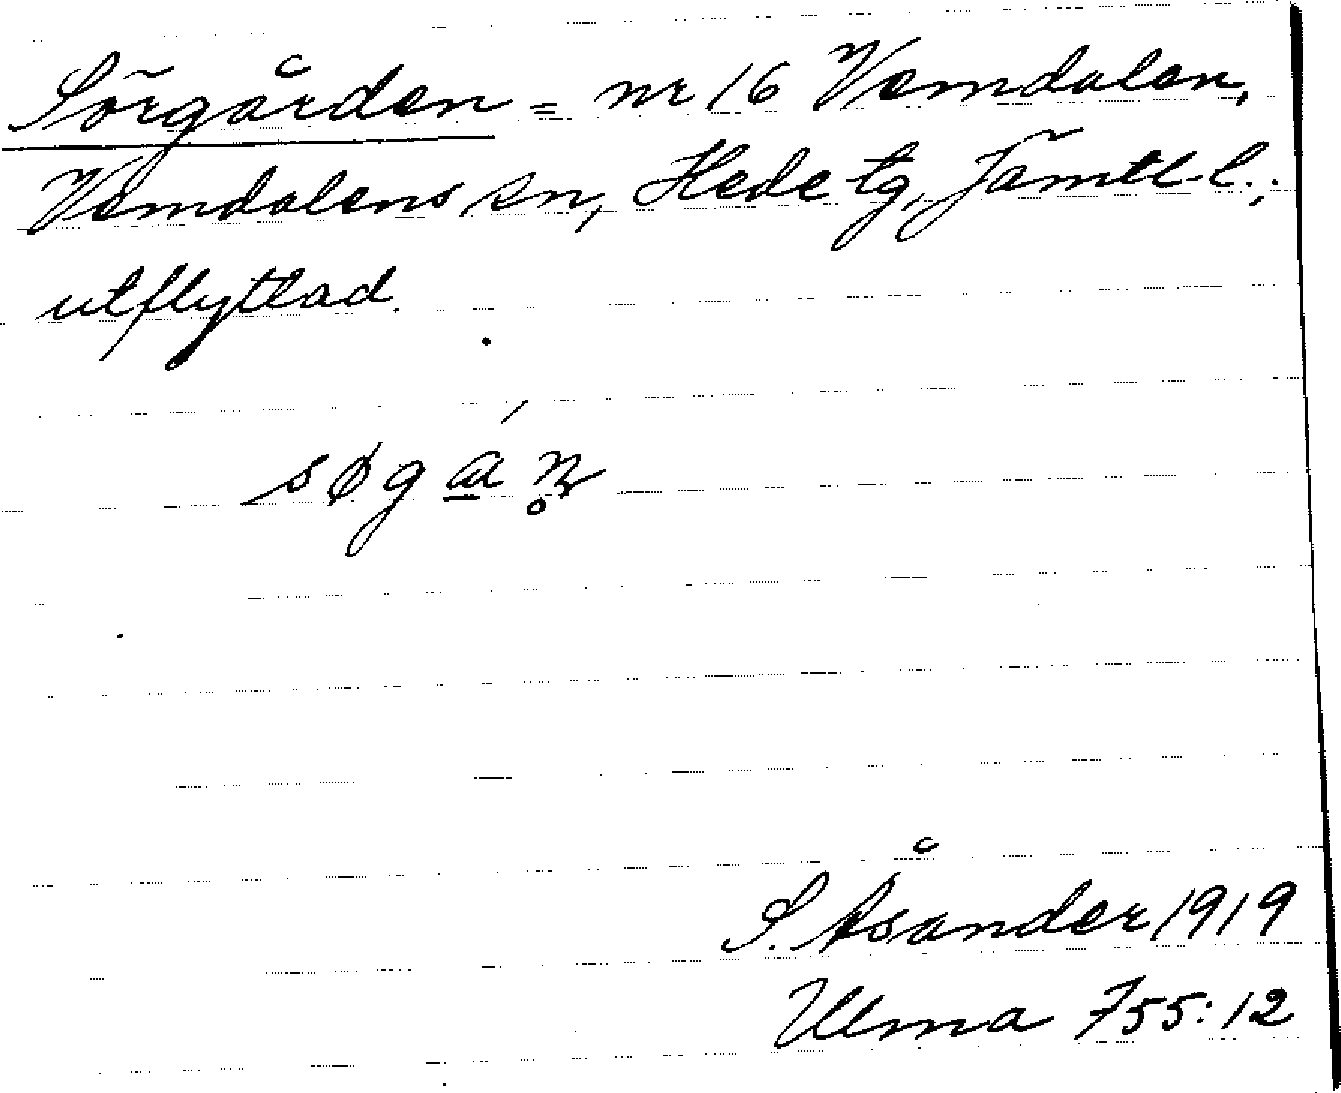 Sörgården = nr 16 Vemdalen,
Vemdalens sn, Hede tg, Jämtl. l.,
utflyttad.
S. Åsander 1919
Ulma 755:12